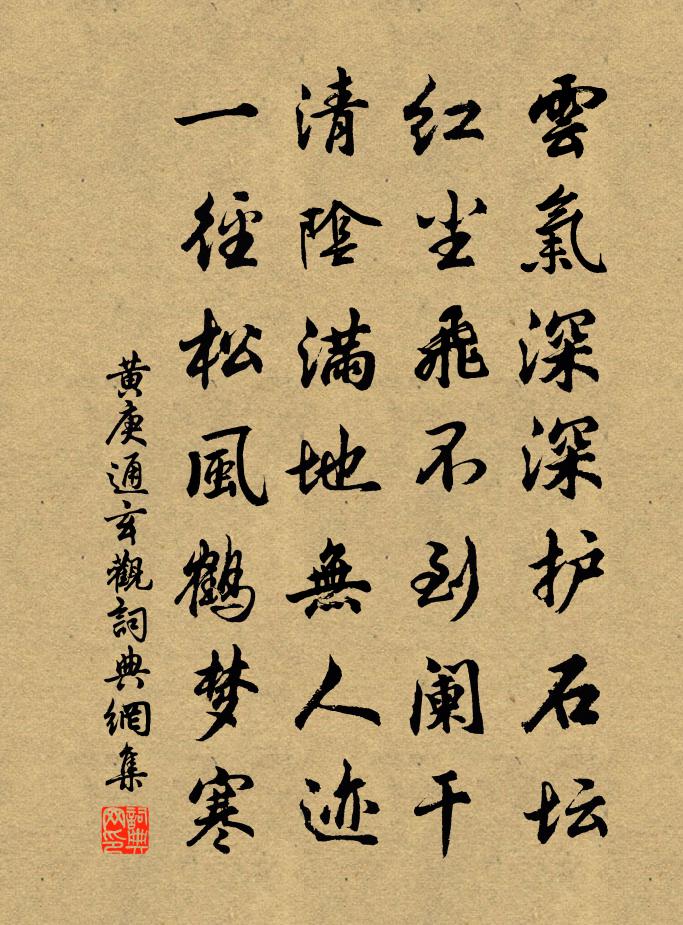 雲氣深深护石坛
红尘飛不到阑干
清陰滿地無人迹
一徑松風鶴梦寒
黄庚通玄觀詞典網集
詞典网印